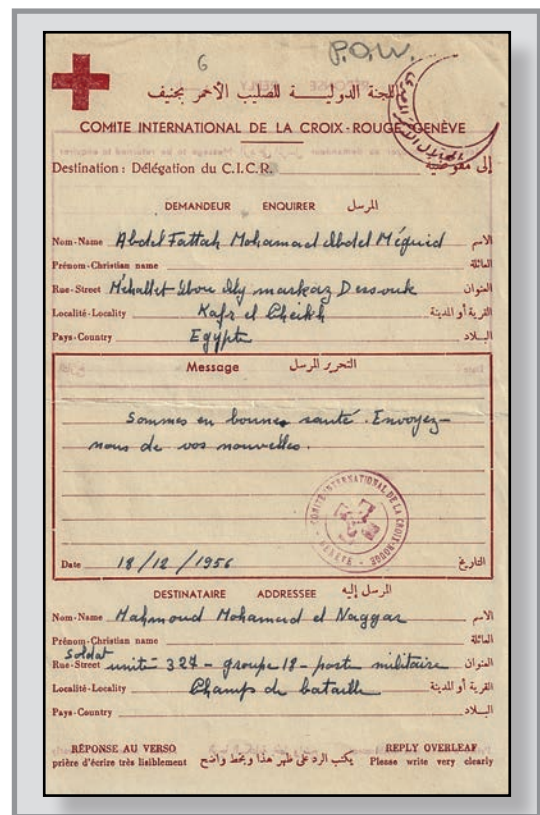 6 P.O.W.
اللجنة الدولية للصليب الأحمر بجنيف
COMITE INTERNATIONAL DE LA CROIX-ROUGE GENÈVE
Destination : Délégation du C.I.C.R. إلى مفوضية
DEMANDEUR ENQUIRER المرسل
Nom-Name Abdel Fattah Mohamad Abdel Méguid الاسم
Prénom-Christian name العائلة
Rue-Street Méhallet Abou Aly markaz Dessouk العنوان
Localité-Locality Kafr el Cheikh القرية أو المدينة
Pays-Country Egypte البلاد
Message التحرير المرسل
Sommes en bonne santé. Envoyez-
nous de vos nouvelles.
COMITE INTERNATIONAL DE LA CROIX-ROUGE - GENEVE -
Date 18/12/1956 التاريخ
DESTINATAIRE ADDRESSEE المرسل إليه
Nom-Name Mahmoud Mohamed el Naggar الاسم
Prénom-Christian name العائلة
Soldat
Rue-Street unité 327 - groupe 18 - poste militaire العنوان
Localité-Locality Champs de bataille القرية أو المدينة
Pays-Country البلاد
RÉPONSE AU VERSO يكتب الرد على ظهر هذا وبخط واضح REPLY OVERLEAF
prière d'écrire très lisiblement Please write very clearly